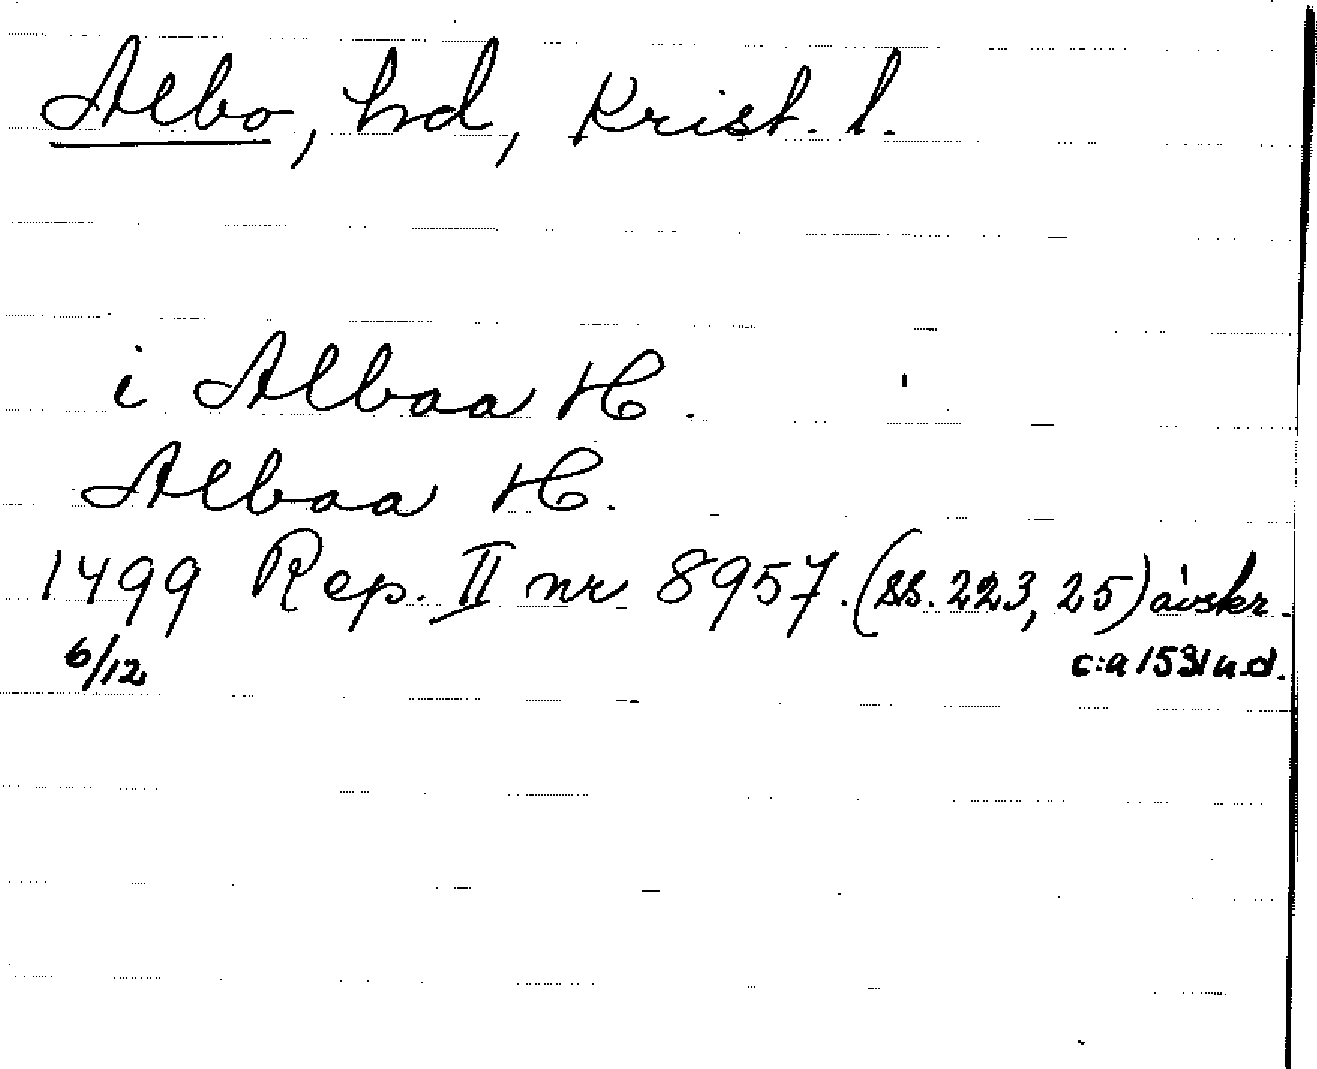 Albo, hd, Krist. l.
i Albaa H.
Albaa H.
1499 Rep. II nr 8957. (ss. 223, 25) avskr.
6/12 c:a 1531 u.d.